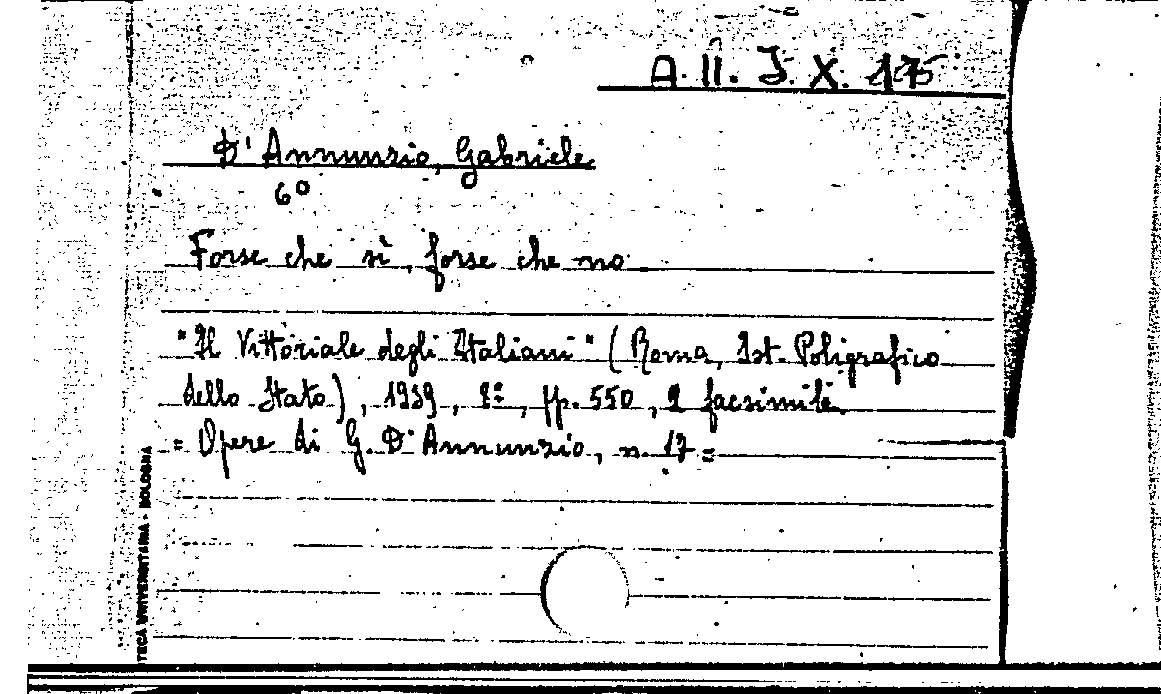 A. II. J. X. 175
D'Annunzio, Gabriele
6º
Forse che sì, forse che no
"Il Vittoriale degli Italiani" (Roma, Ist. Poligrafico
dello Stato), 1939, 8º, pp. 550, 2 facsimile.
= Opere di G. D'Annunzio, n. 17 =
TECA UNIVERSITARIA - BOLOGNA